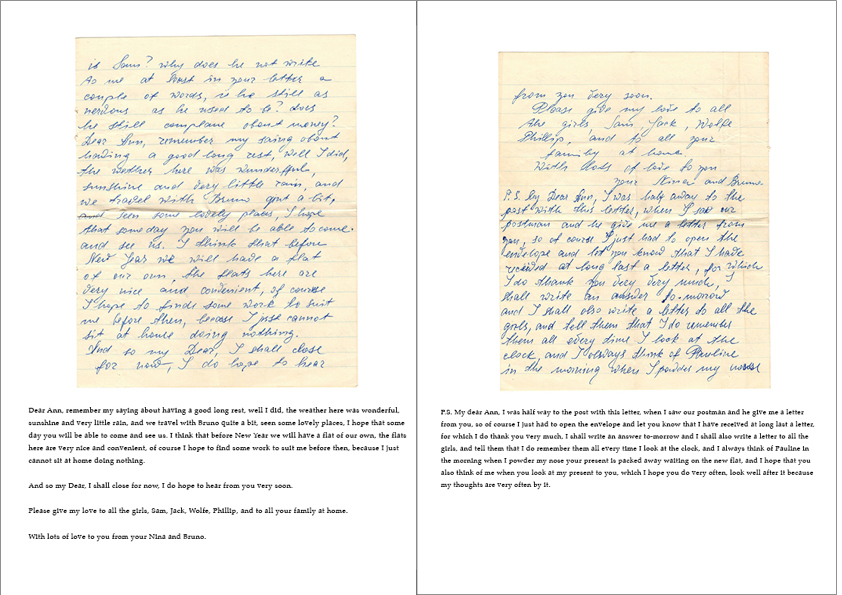 is Sam? why does he not write
to me at least in your letter a
couple of words, is he still as
nervous as he used to be? does
he still complane about money?
Dear Ann, remember my saing about
having a good long rest, well I did,
the weather here was wunderful,
sunshine and very little rain, and
we travel with Bruno quit a bit,
and seen some lovely places, I hope
that someday you will be able to come
and see us. I think that before
New Year we will have a flat
of our own, the flats here are
very nice and convenient, of course
I hope to find some work to suit
me before then, becase I just cannot
sit at house doing nothing.
And so my Dear, I shall close
for now, I do hope to hear
Dear Ann, remember my saying about having a good long rest, well I did, the weather here was wonderful,
sunshine and very little rain, and we travel with Bruno quite a bit, seen some lovely places, I hope that some
day you will be able to come and see us. I think that before New Year we will have a flat of our own, the flats
here are very nice and convenient, of course I hope to find some work to suit me before then, because I just
cannot sit at home doing nothing.
And so my Dear, I shall close for now, I do hope to hear from you very soon.
Please give my love to all the girls, Sam, Jack, Wolfe, Phillip, and to all your family at home.
With lots of love to you from your Nina and Bruno.
from you very soon.
Please give my love to all
the girls Sam, Jack, Wolfe
Phillip, and to all your
family at home.
With lots of love to you
your Nina and Bruno.
P.S. My Dear Ann, I was half away to the
post with this letter, when I saw our
postman and he give me a letter from
you, so of course I just had to open the
envelope and let you know that I have
received at long last a letter, for which
I do thank you very very much, I
shall write an answer to-morrow
and I shall also write a letter to all the
girls, and tell them that I do remember
them all every time I look at the
clock, and I always think of Pauline
in the morning when I powder my nose
P.S. My dear Ann, I was half way to the post with this letter, when I saw our postman and he give me a letter
from you, so of course I just had to open the envelope and let you know that I have received at long last a letter,
for which I do thank you very much, I shall write an answer to-morrow and I shall also write a letter to all the
girls, and tell them that I do remember them all every time I look at the clock, and I always think of Pauline in
the morning when I powder my nose your present is packed away waiting on the new flat, and I hope that you
also think of me when you look at my present to you, which I hope you do very often, look well after it because
my thoughts are very often by it.